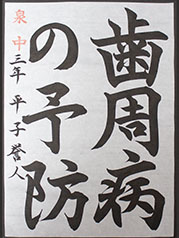 歯周病
の予防
泉中三年 平子誉人